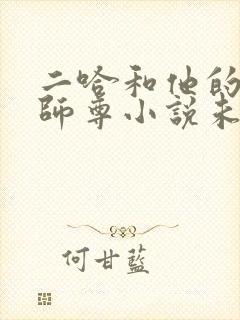 二哈和他的
師尊小說未
何甘藍